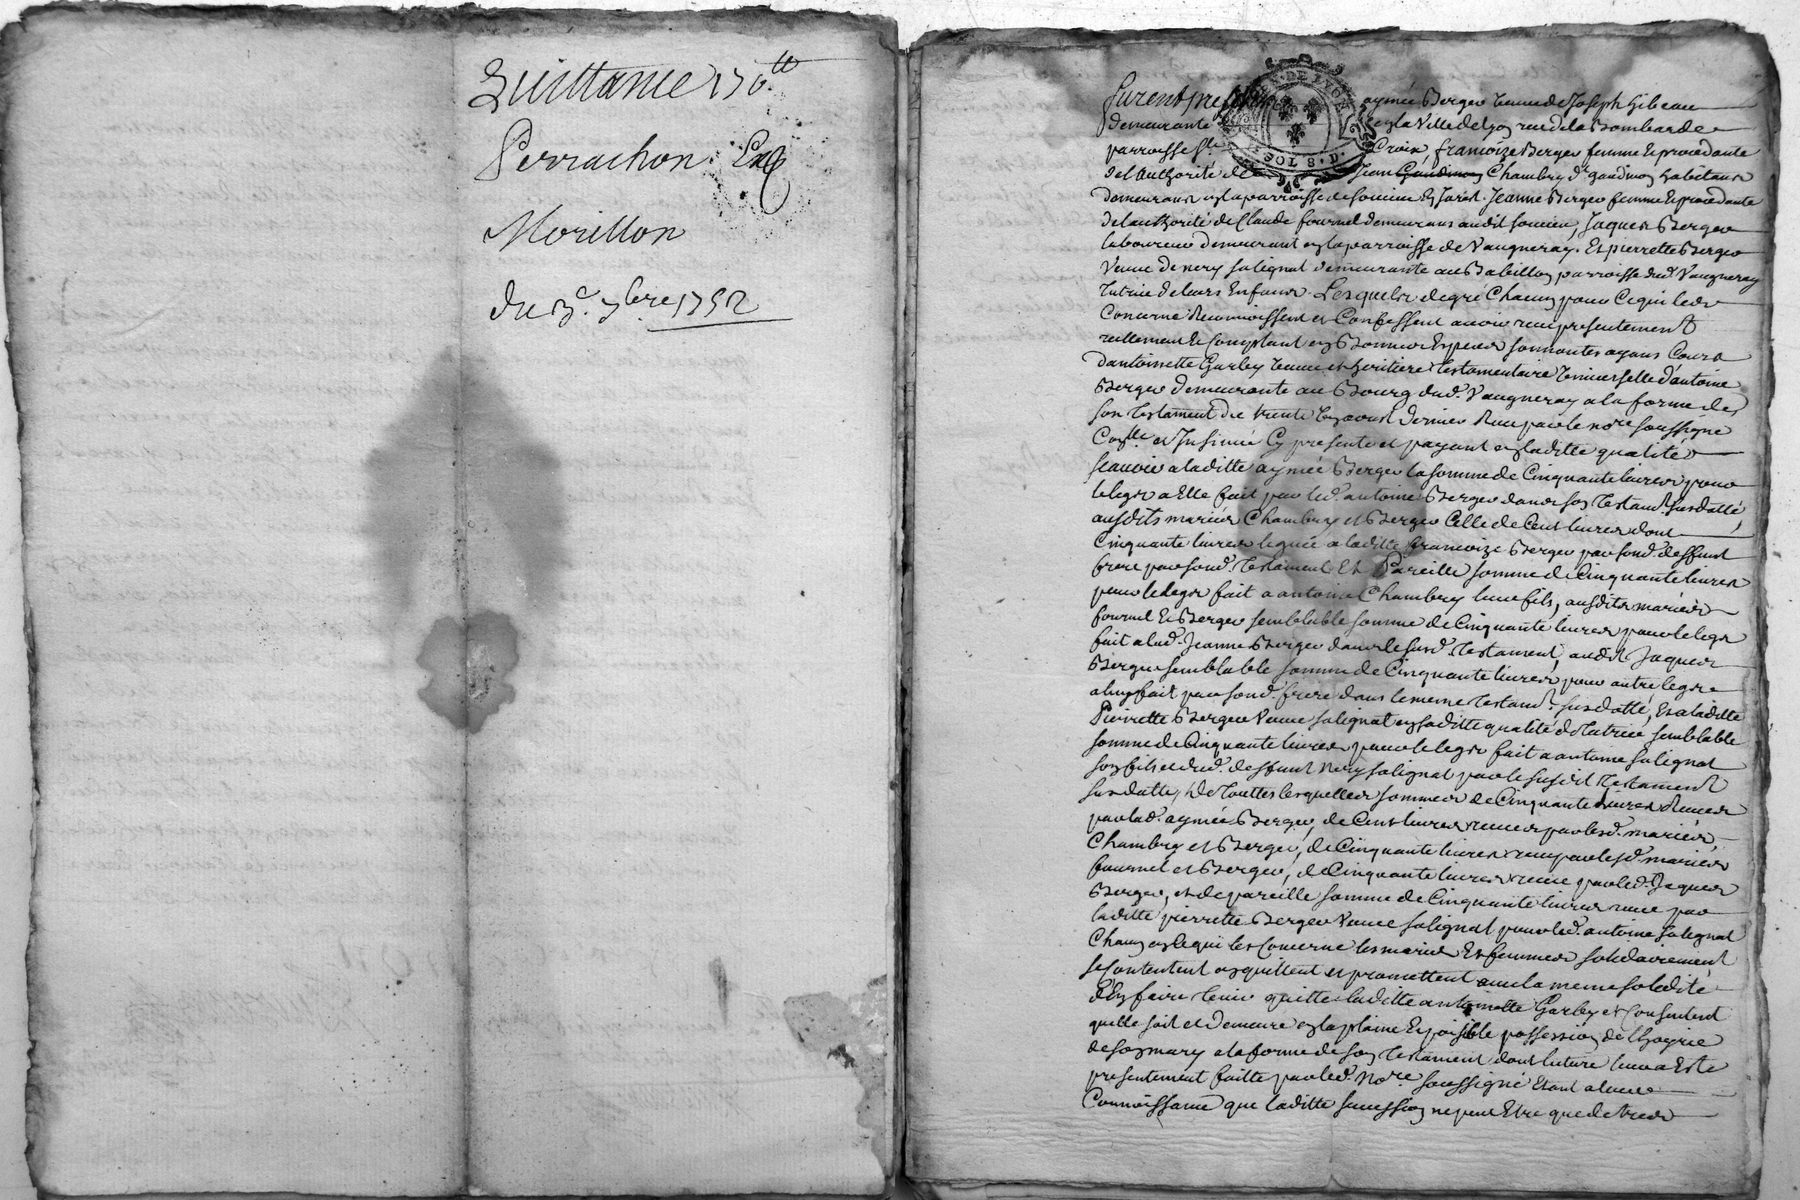 Quittance 176 tt
Perrachon Et
Morillon
du 3e. 7bre 1752
DE LYON
8 . TOS . D
furent presents aymée Berger veuve de Joseph Gibeau
demeurante en la Ville de Lyon rue de la Bombarde
parroisse Ste Croix, francoize Berger femme et procedante
de l'authorité de Jean Chambry Dr gaudmon habitans
demeurans en la parroisse de Soucieu en Jarest, Jeanne Berger femme et procedante
de l'authorité de Claude fournel demeurans audit Soucieu, Jaques Berger
laboureur demeurant en la parroisse de Vaugneray. Et pierrette Berger
veuve de nery salignat demeurante au Babillon parroisse dud. Vaugneray
tutrice de leurs Enfans. Lesquels de gré Chacun pour Ce qui les
Concerne Reconnoissent et Confessent avoir reçu presentement
reellement et Comptant en Bonnes Especes sonnantes ayans Cours
d'antoinette Garbey veuve et heritiere testamentaire universelle d'antoine
Berger demeurante au Bourg dud. Vaugneray a la forme de
son testament du trente un aoust dernier Reçu par le nore soussigné
Conlle et Insinué Cy presente et payant en laditte qualité
scavoir a laditte aymée Berger la somme de Cinquante livres pour
le legs a Elle fait par led. antoine Berger dans son testamt. susdatté,
ausdits mariés Chambry et Berger Celle de Cent livres dont
Cinquante livres leguée a laditte francoize Berger par sond. deffunt
frere par sond. testament Et Pareille somme de Cinquante livres
pour le legs fait a antoine Chambry leur fils, ausdits mariés
fournel et Berger semblable somme de Cinquante livres pour le legs
fait a lad. Jeanne Berger dans le susd. testament, audit Jaques
Berger semblable somme de Cinquante livres pour autre legs
a luy fait par sond. frere dans le meme testamt. susdatté, Et a laditte
Pierrette Berger Veuve salignat en saditte qualité de tutrice semblable
somme de Cinquante livres pour le legs fait a antoine salignat
son fils et dud. deffunt Nery salignat par le susdit testament
susdatté, De touttes lesquelles sommes de Cinquante livres Reçues
par lad. aymée Berger, de Cent livres reçues par lesd. mariés
Chambry et Berger, de Cinquante livres reçues par lesd. mariés
fournel et Berger, de Cinquante livres reçue par led. Jaques
Berger, et de pareille somme de Cinquante livres reçue par
laditte pierrette Berger Veuve salignat pour led. antoine salignat
Chacun en Ce qui les Concerne les maris Et femmes solidairement
se Contentent en quittent et promettent avec la meme solidité
d'En faire tenir quitte laditte antoinette Garbey et Consentent
quelle soit et Demeure en la plaine Et paisible possession de l'hoyrie
de son mary a la forme de son testament dont lecture leur a Eté
presentement faitte par led. Nore. soussigné Etant a leur
Connoissance que laditte succession ne peut Etre que de tres